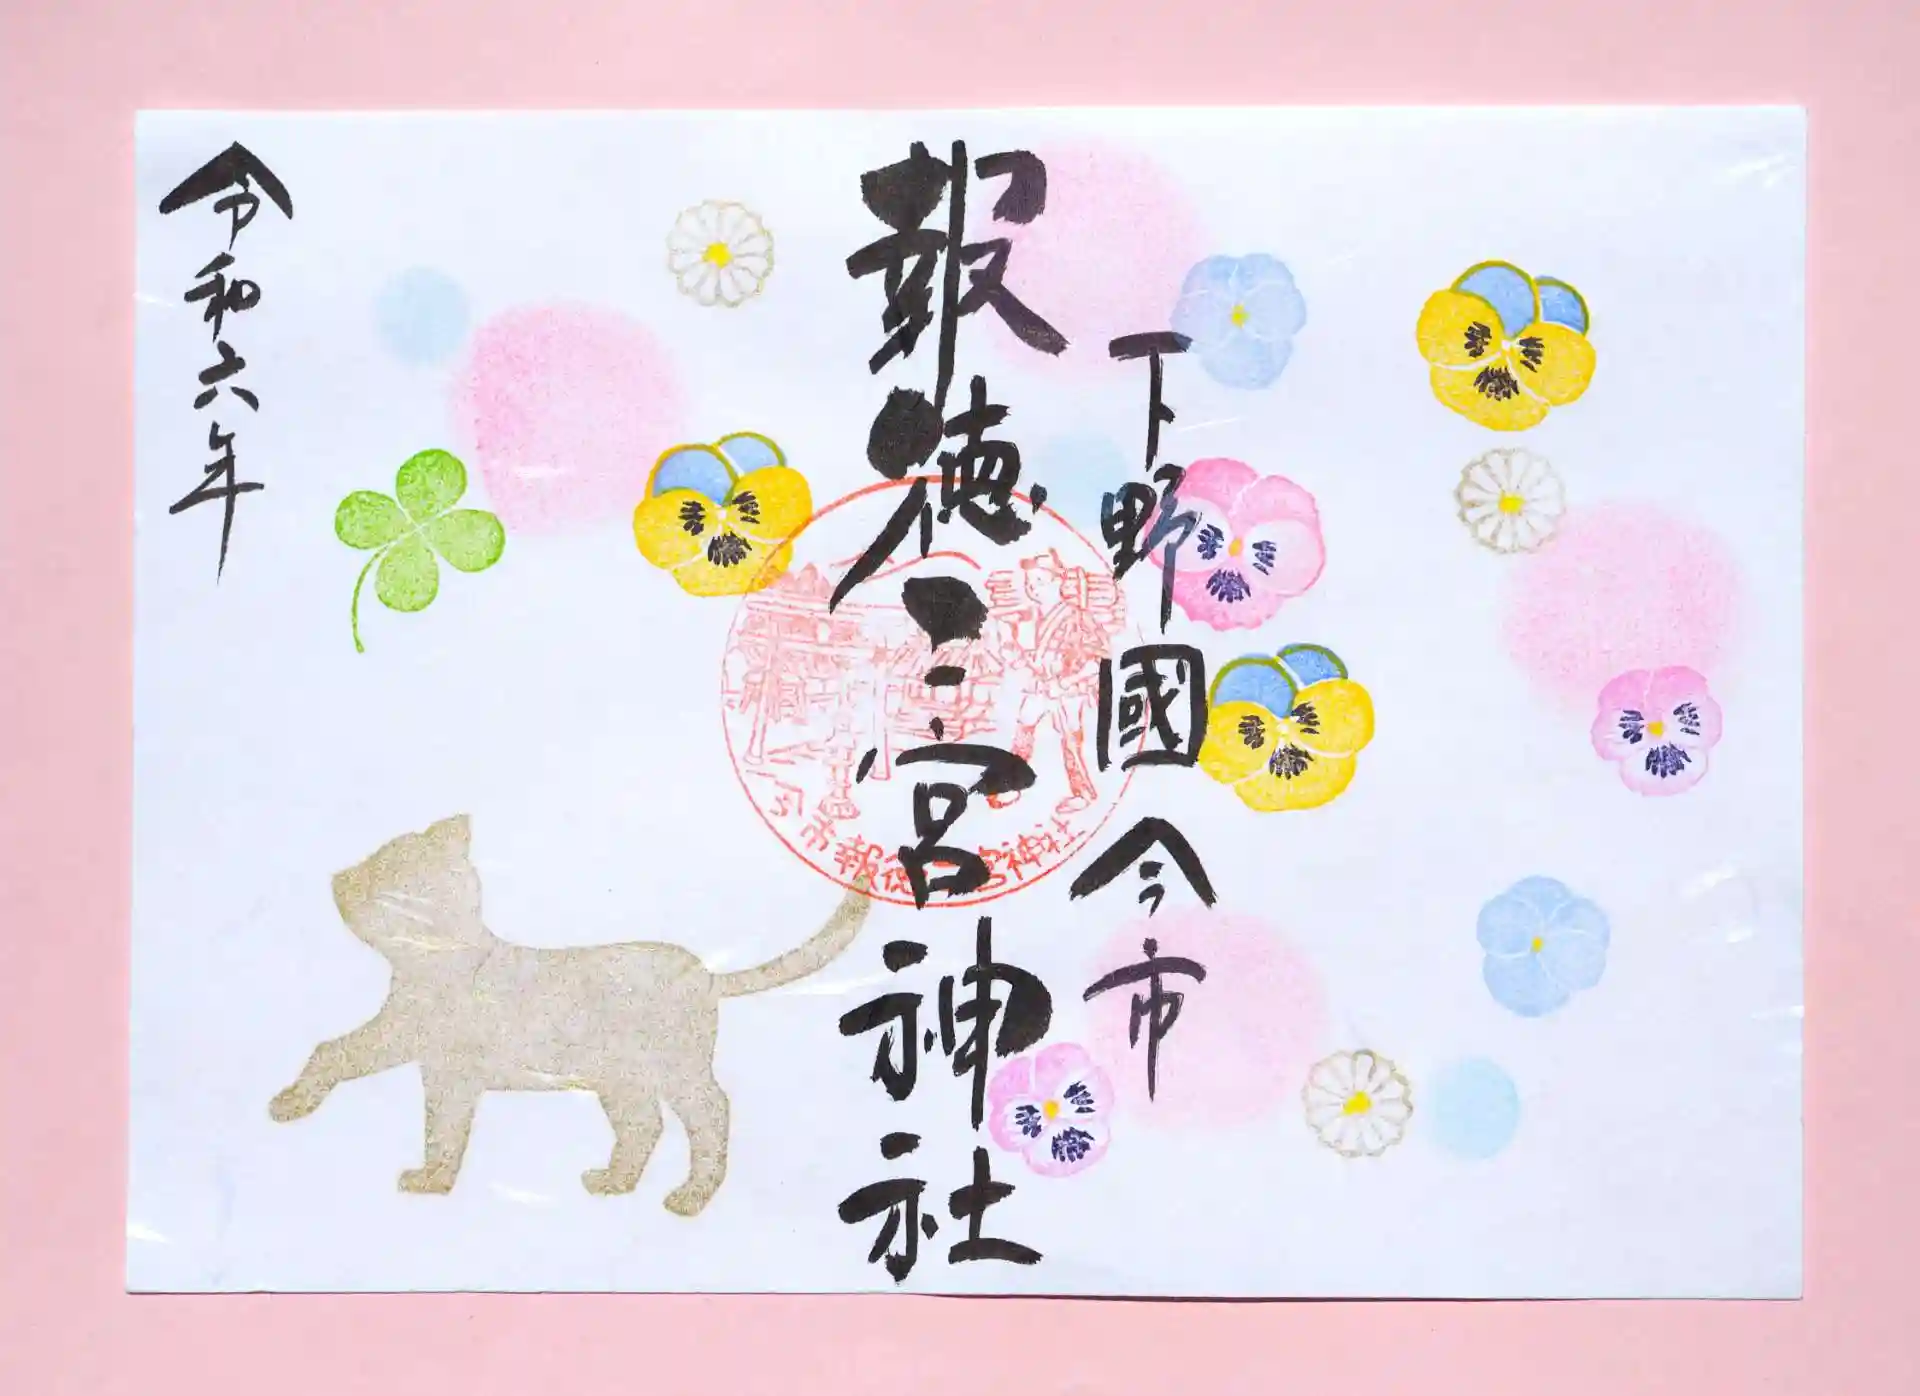 下野國今市
報徳二宮神社
今市報徳二宮神社
令和六年